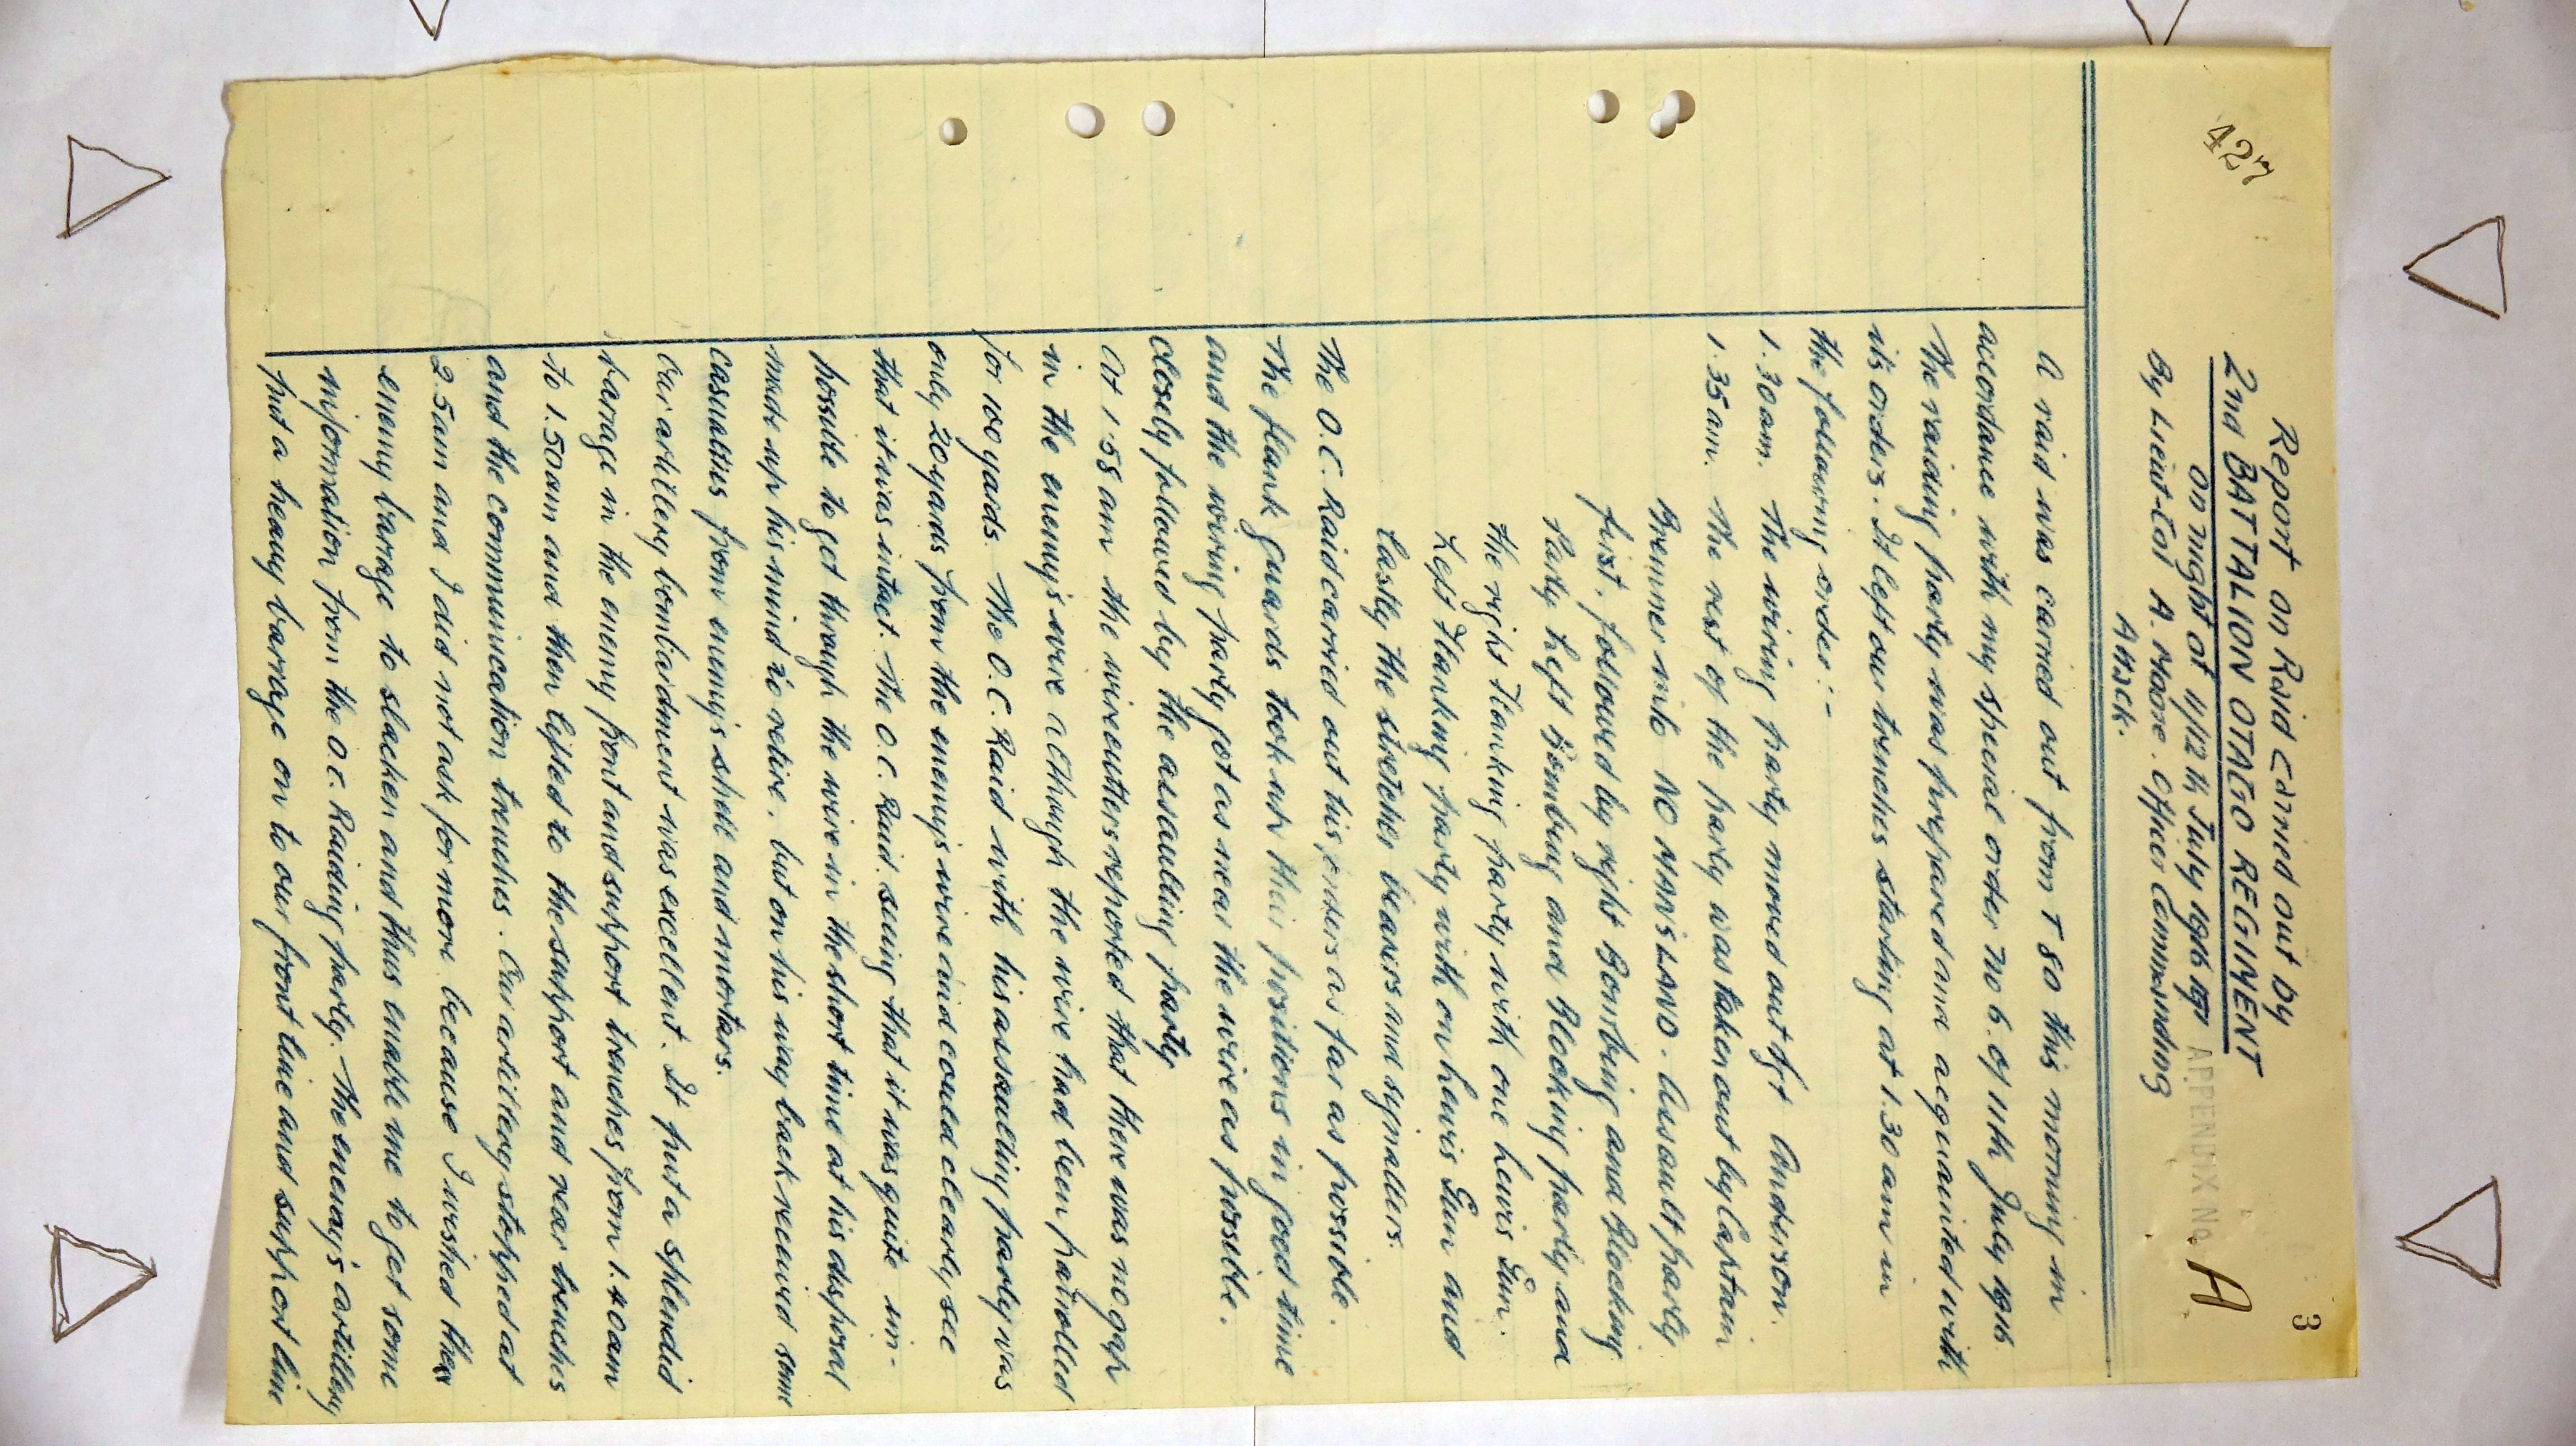 427
3
Report on Raid carried out by
2nd BATTALION OTAGO REGIMENT
on night of 11/12th July 1916
APPENDIX No. A
By Lieut-Col A. Moore. Officer Commanding
Attack.
A raid was carried out from T 80 this morning in
accordance with my special order No 6. of 11th July 1916
The raiding party was prepared and acquainted with
its orders. It left our trenches starting at 1.30 am in
the following order:-
1.30 am. The wiring party moved out Sgt Anderson.
1.35 am. The rest of the party was taken out by Captain
Bremner into NO MAN'S LAND. Assault party
first, followed by right Bombing and Blocking
Party Left Bombing and Blocking party and
the right Flanking party with one Lewis Gun.
Left Flanking party with on Lewis Gun and
lastly the stretcher bearers and signallers.
The O.C. Raid carried out his orders as far as possible.
The flank guards took up their positions in good time
and the wiring party got as near the wire as possible.
closely followed by the assaulting party
At 1.58 am the wirecutters reported that there was no gap
in the enemy's wire although the wire had been patrolled
for 100 yards. The O.C. Raid with his assaulting party was
only 20 yards from the enemy's wire and could clearly see
that it was intact. The O.C. Raid. seeing that it was quite im-
possible to get through the wire in the short time at his disposal
made up his mind to retire, but on his way back received some
casualties from enemy's shell and mortars.
Our artillery bombardment was excellent. It put a splendid
barage in the enemy front and support trenches from 1.40 am
to 1.50 am and then lifted to the support and rear trenches
and the communication trenches. Our artillery stopped at
2.5 am and I did not ask for more because I wished the
enemy barrage to slacken and thus enable me to get some
information from the O.C. Raiding party. The enemy's artillery
put a heavy barrage on to our front line and support line